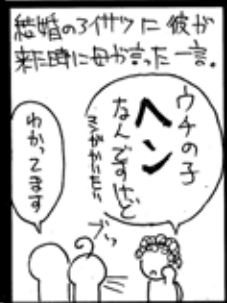 結婚のアイサツに彼が
来た時に母が言った一言。
ウチの子
ヘン
なんですけど
ブッ
わかってます